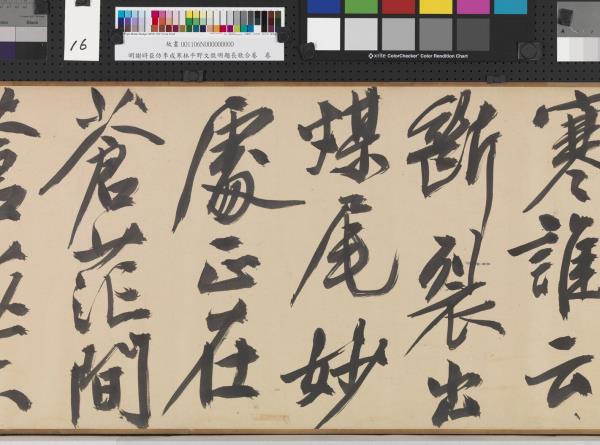 Black
16
故畫 001106N000000000
明謝時臣仿李成寒林平野文徵明題長歌合卷 卷
x-rite ColorChecker Color Rendition Chart
寒誰云
斷裂出
煤尾妙
處正在
蒼茫間